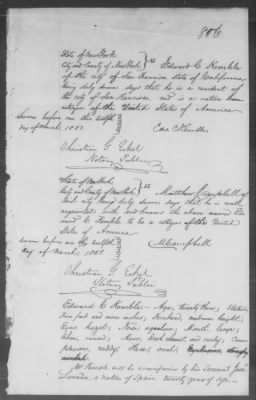 806
State of New York
City and County of New York } ss Edward C. Kemble
of the city of San Francisco State of California
being duly sworn says that he is a resident of
the city of San Francisco, and is a native born
citizen of the United States of America
Sworn before me this twelfth
day of March, 185
Edw C Kemble
Christian G. Eckel
Notary Public
State of New York
City and County of New York } ss Matthew Campbell of
said city being duly sworn says that he is well
acquainted with and knows the above named Ed
ward C. Kemble to be a citizen of the United
States of America
Sworn before me this twelfth
day of March, 185
M Campbell
Christian G. Eckel
Notary Public
Edward C. Kemble Age, twenty three; Stature
five feet and nine inches; Forehead, medium height;
Eyes hazel; Nose aquiline; Mouth large;
Chin, round; Hair, dark and; Com
plexion, ruddy; Face, oval;
Mr Kemble will be accompanied by his Servant Jose
a native of Spain twenty years of age